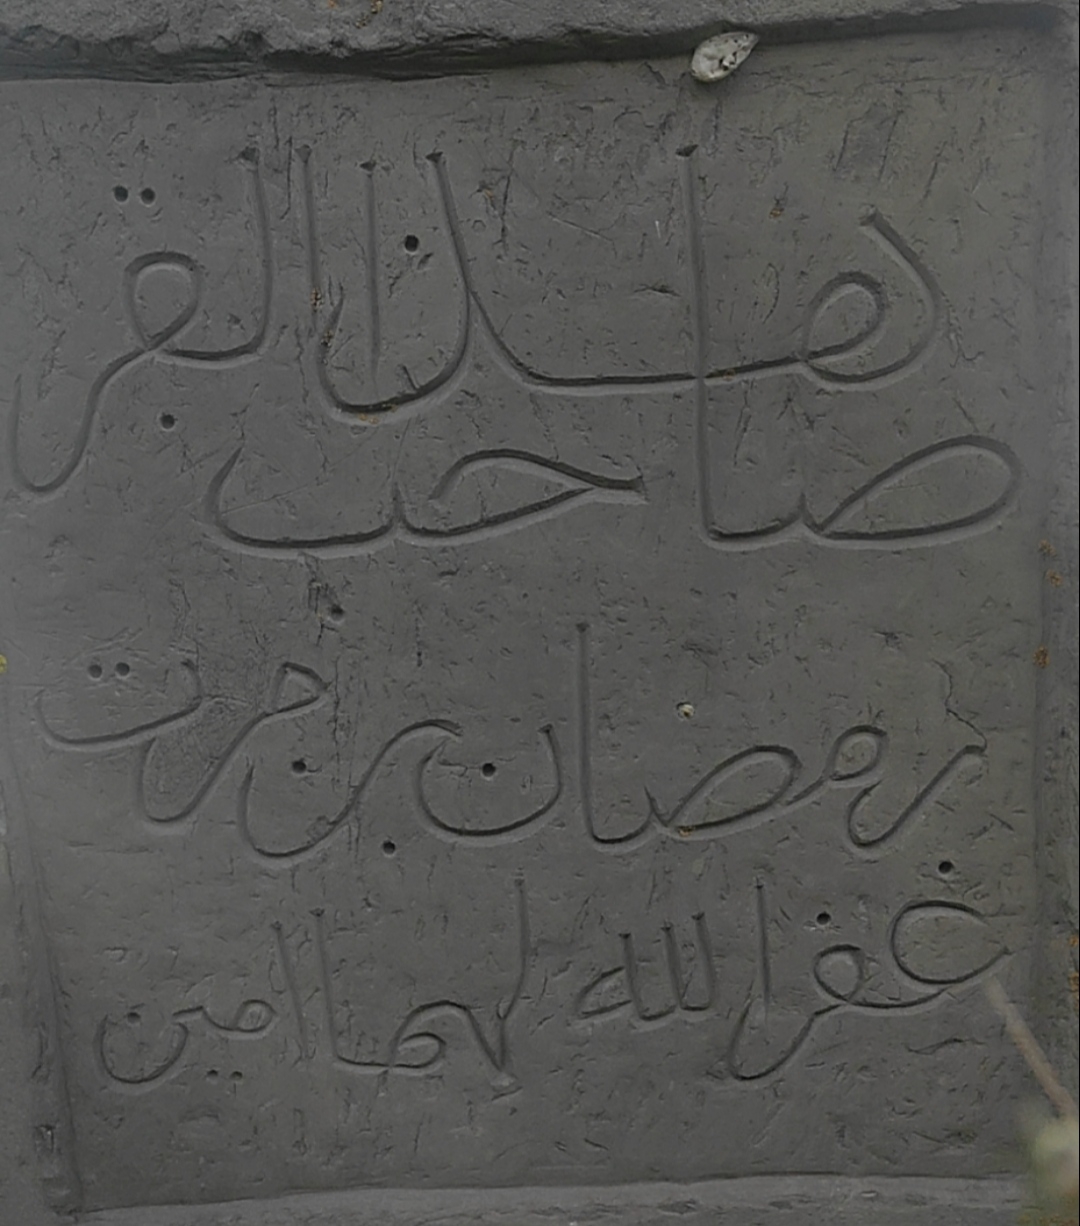 صاحب هذا القبر
رمضان بن حرت
غفر الله لهما امين